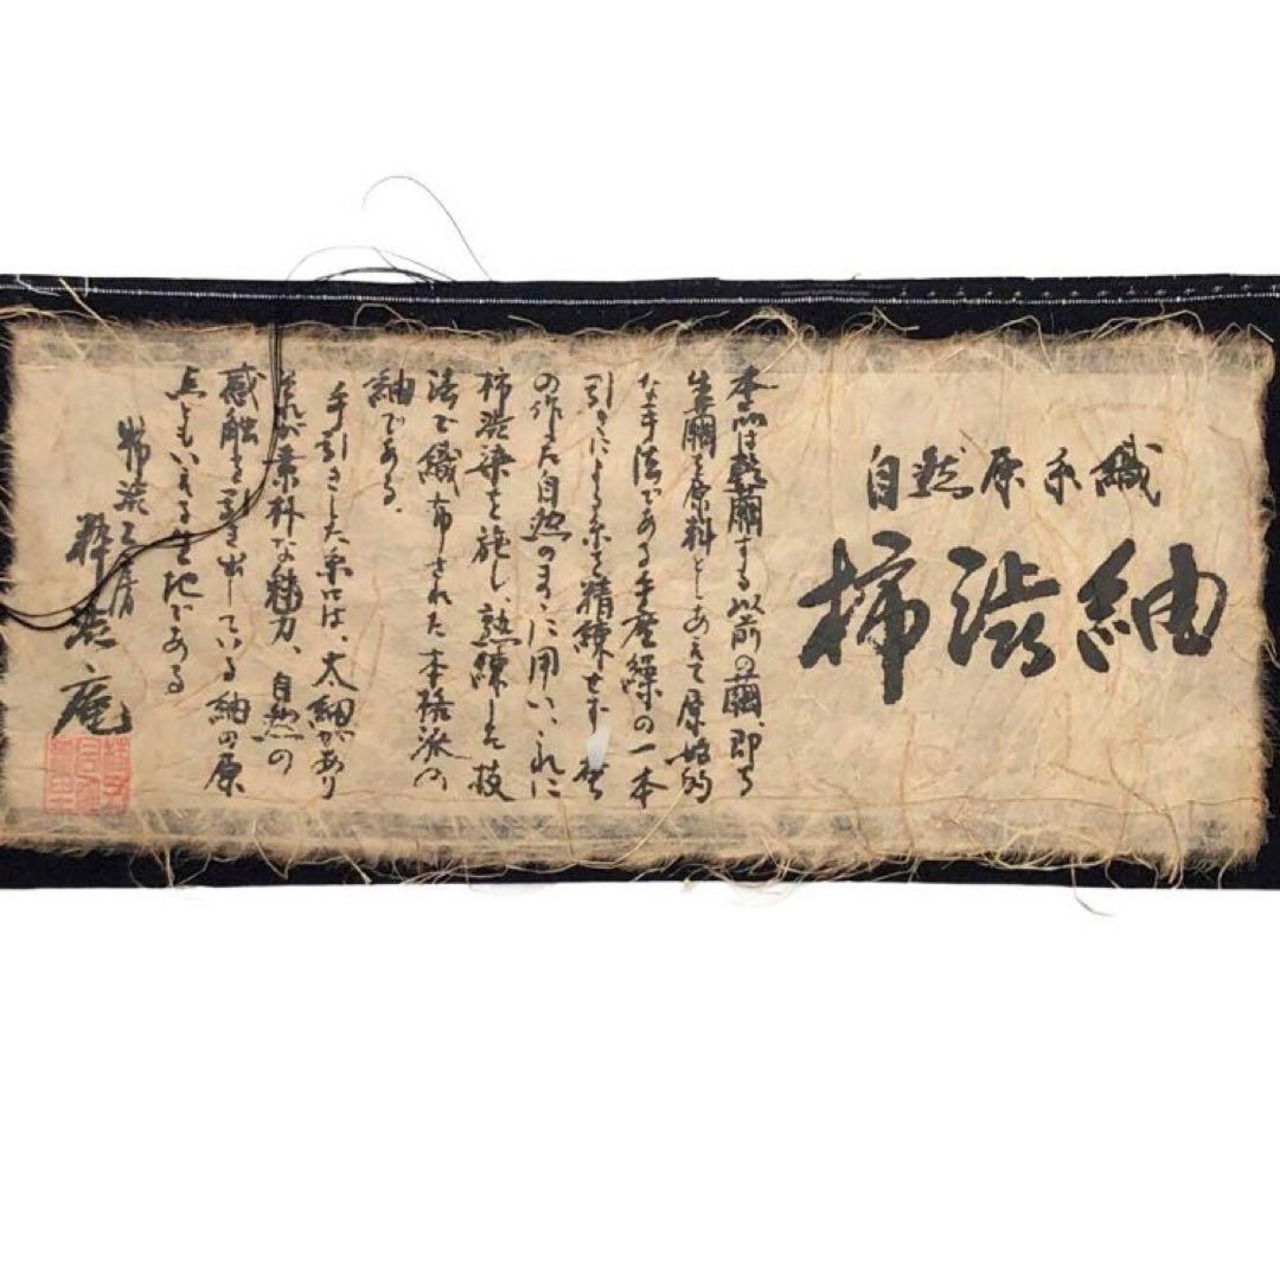 自然原手織
柿渋紬
本品は乾繭する以前の繭、即ち
生繭を原料としあえて原始的
な手法である手座繰の一本
引きによる糸を精練せず
の作った自然のまゝに用い、これに
柿渋染を施し、熟練した技
法で織布された本格派の
紬である。
手引きした糸には、太細があり
それが素朴な魅力、自然の
感触を引き出している紬の原
点ともいえる生地である
柿渋工房
粋渋庵